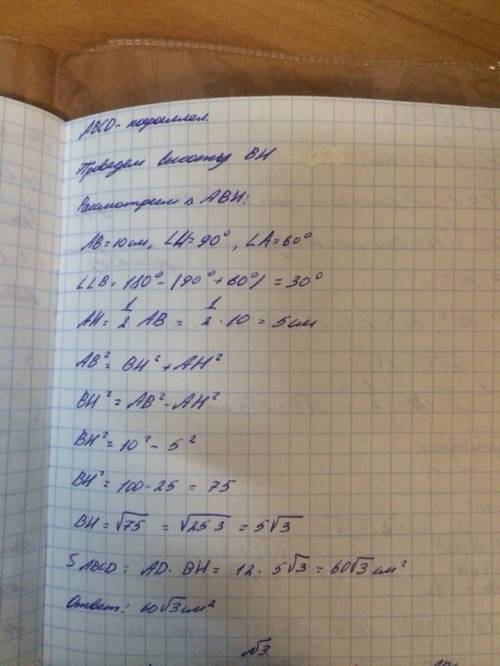 ABCD - параллел.
Проведем высоту BH
Рассмотрим △ ABH:
AB = 10 см, ∠H = 90°, ∠A = 60°
∠∠B = 180° - (90° + 60°) = 30°
AH = 1/2 AB = 1/2 · 10 = 5 см
AB² = BH² + AH²
BH² = AB² - AH²
BH² = 10² - 5²
BH² = 100 - 25 = 75
BH = √75 = √25·3 = 5√3
S ABCD = AD · BH = 12 · 5√3 = 60√3 см²
Ответ: 60√3 см²
√3